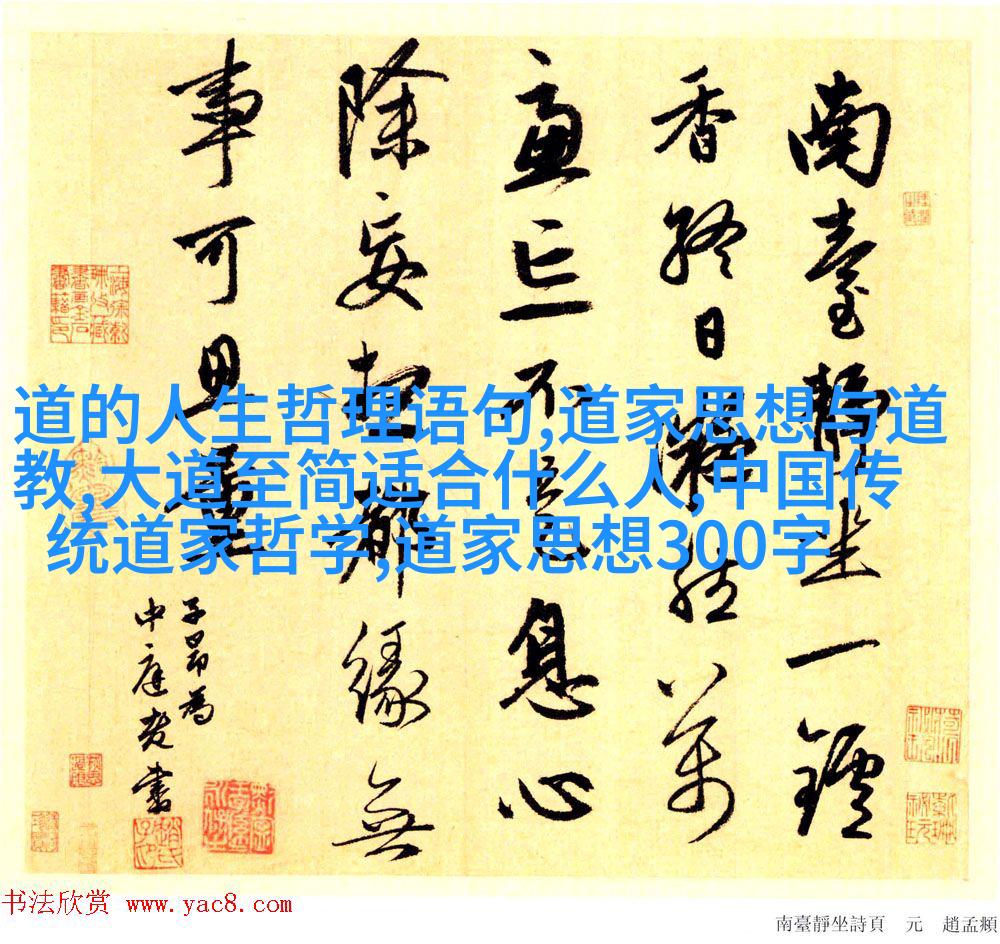 南臺靜坐一鑪
香終日凝然萬
慮亡不是息心
除妄想都緣無
事可思量
子昂為
中庭老書
道的人生哲理语句,道家思想与道
教,大道至简适合什么人,中国传
统道家哲学,道家思想300字
书法欣赏 www.yac8.com
南臺靜坐詩頁 元 趙孟頫